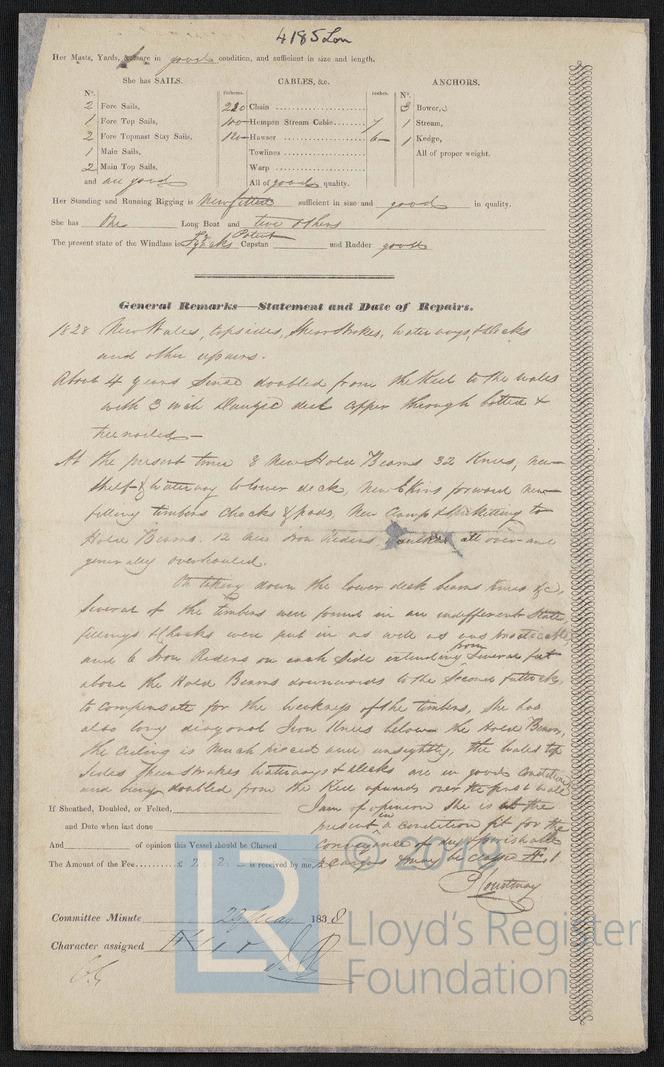 4185 Lon
Her Masts, Yards, &c are in good condition, and sufficient in size and length.
She has SAILS. CABLES, &c. ANCHORS.
N°. Fathoms. Inches. N°.
2 Fore Sails, Chain 3 Bower,s
1 Fore Top Sails, 100 Hempen Stream Cable 7 1 Stream,
2 Fore Topmast Stay Sails, 120 Hawser 6 1 Kedge,
1 Main Sails, Towlines All of proper weight.
2 Main Top Sails, Warp
and are good All of good quality.
Her Standing and Running Rigging is New fitted sufficient in size and good in quality.
She has One Long Boat and two others
The present state of the Windlass is Patent Capstan and Rudder good
General Remarks—Statement and Date of Repairs.
1828 New Wales, topsides, Sheer Strakes, Waterways, & decks
and other repairs.
About 4 years since doubled from the Keel to the wales
with 3 inch Dantzic deck copper through bolted &
treenailed —
At the present time 8 New Hold Beams 32 Knees, new
Shelf & waterway to lower deck, New forward new
filling timbers Chocks & pads, New Clamp & Spirketting to
Hold Beams. 12 Iron Riders all over and
generally overhauled.
On taking down the lower deck beams &c,
Several of the timbers were found in an indifferent State,
fillings & Chocks were put in as well as was practicable,
and 6 Iron Riders on each Side extending from Several feet
above the Hold Beams downwards to the Second futtocks,
to compensate for the weakness of the timbers, She has
also long diagonal Iron Knees below the Hold Beams,
the ceiling is Much pieced and unsightly, the wales top
Sides Sheerstrakes Waterways & decks are in good Condition,
and being doubled from the Keel upwards over the
If Sheathed, Doubled, or Felted, I am of opinion She is at the
and Date when last done present in a condition fit for the
And of opinion this Vessel should be Classed conveyance of dry & perishable
The Amount of the Fee £ 2. 2. is received by me cargoes & may be classed Æ. 1
Courtenay
Committee Minute 29 May 1838
Character assigned Æ 1
© 2019
LR
Lloyd's Register
Foundation